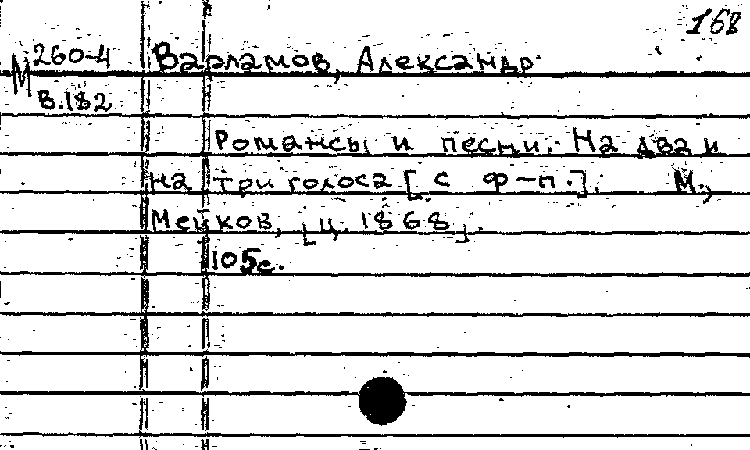 168
М 260-4 Варламов, Александр.
В.182
Романсы и песни. На два и
на три голоса [ с ф-п.]. М.,
Мейков, [ц. 1868].
105с.